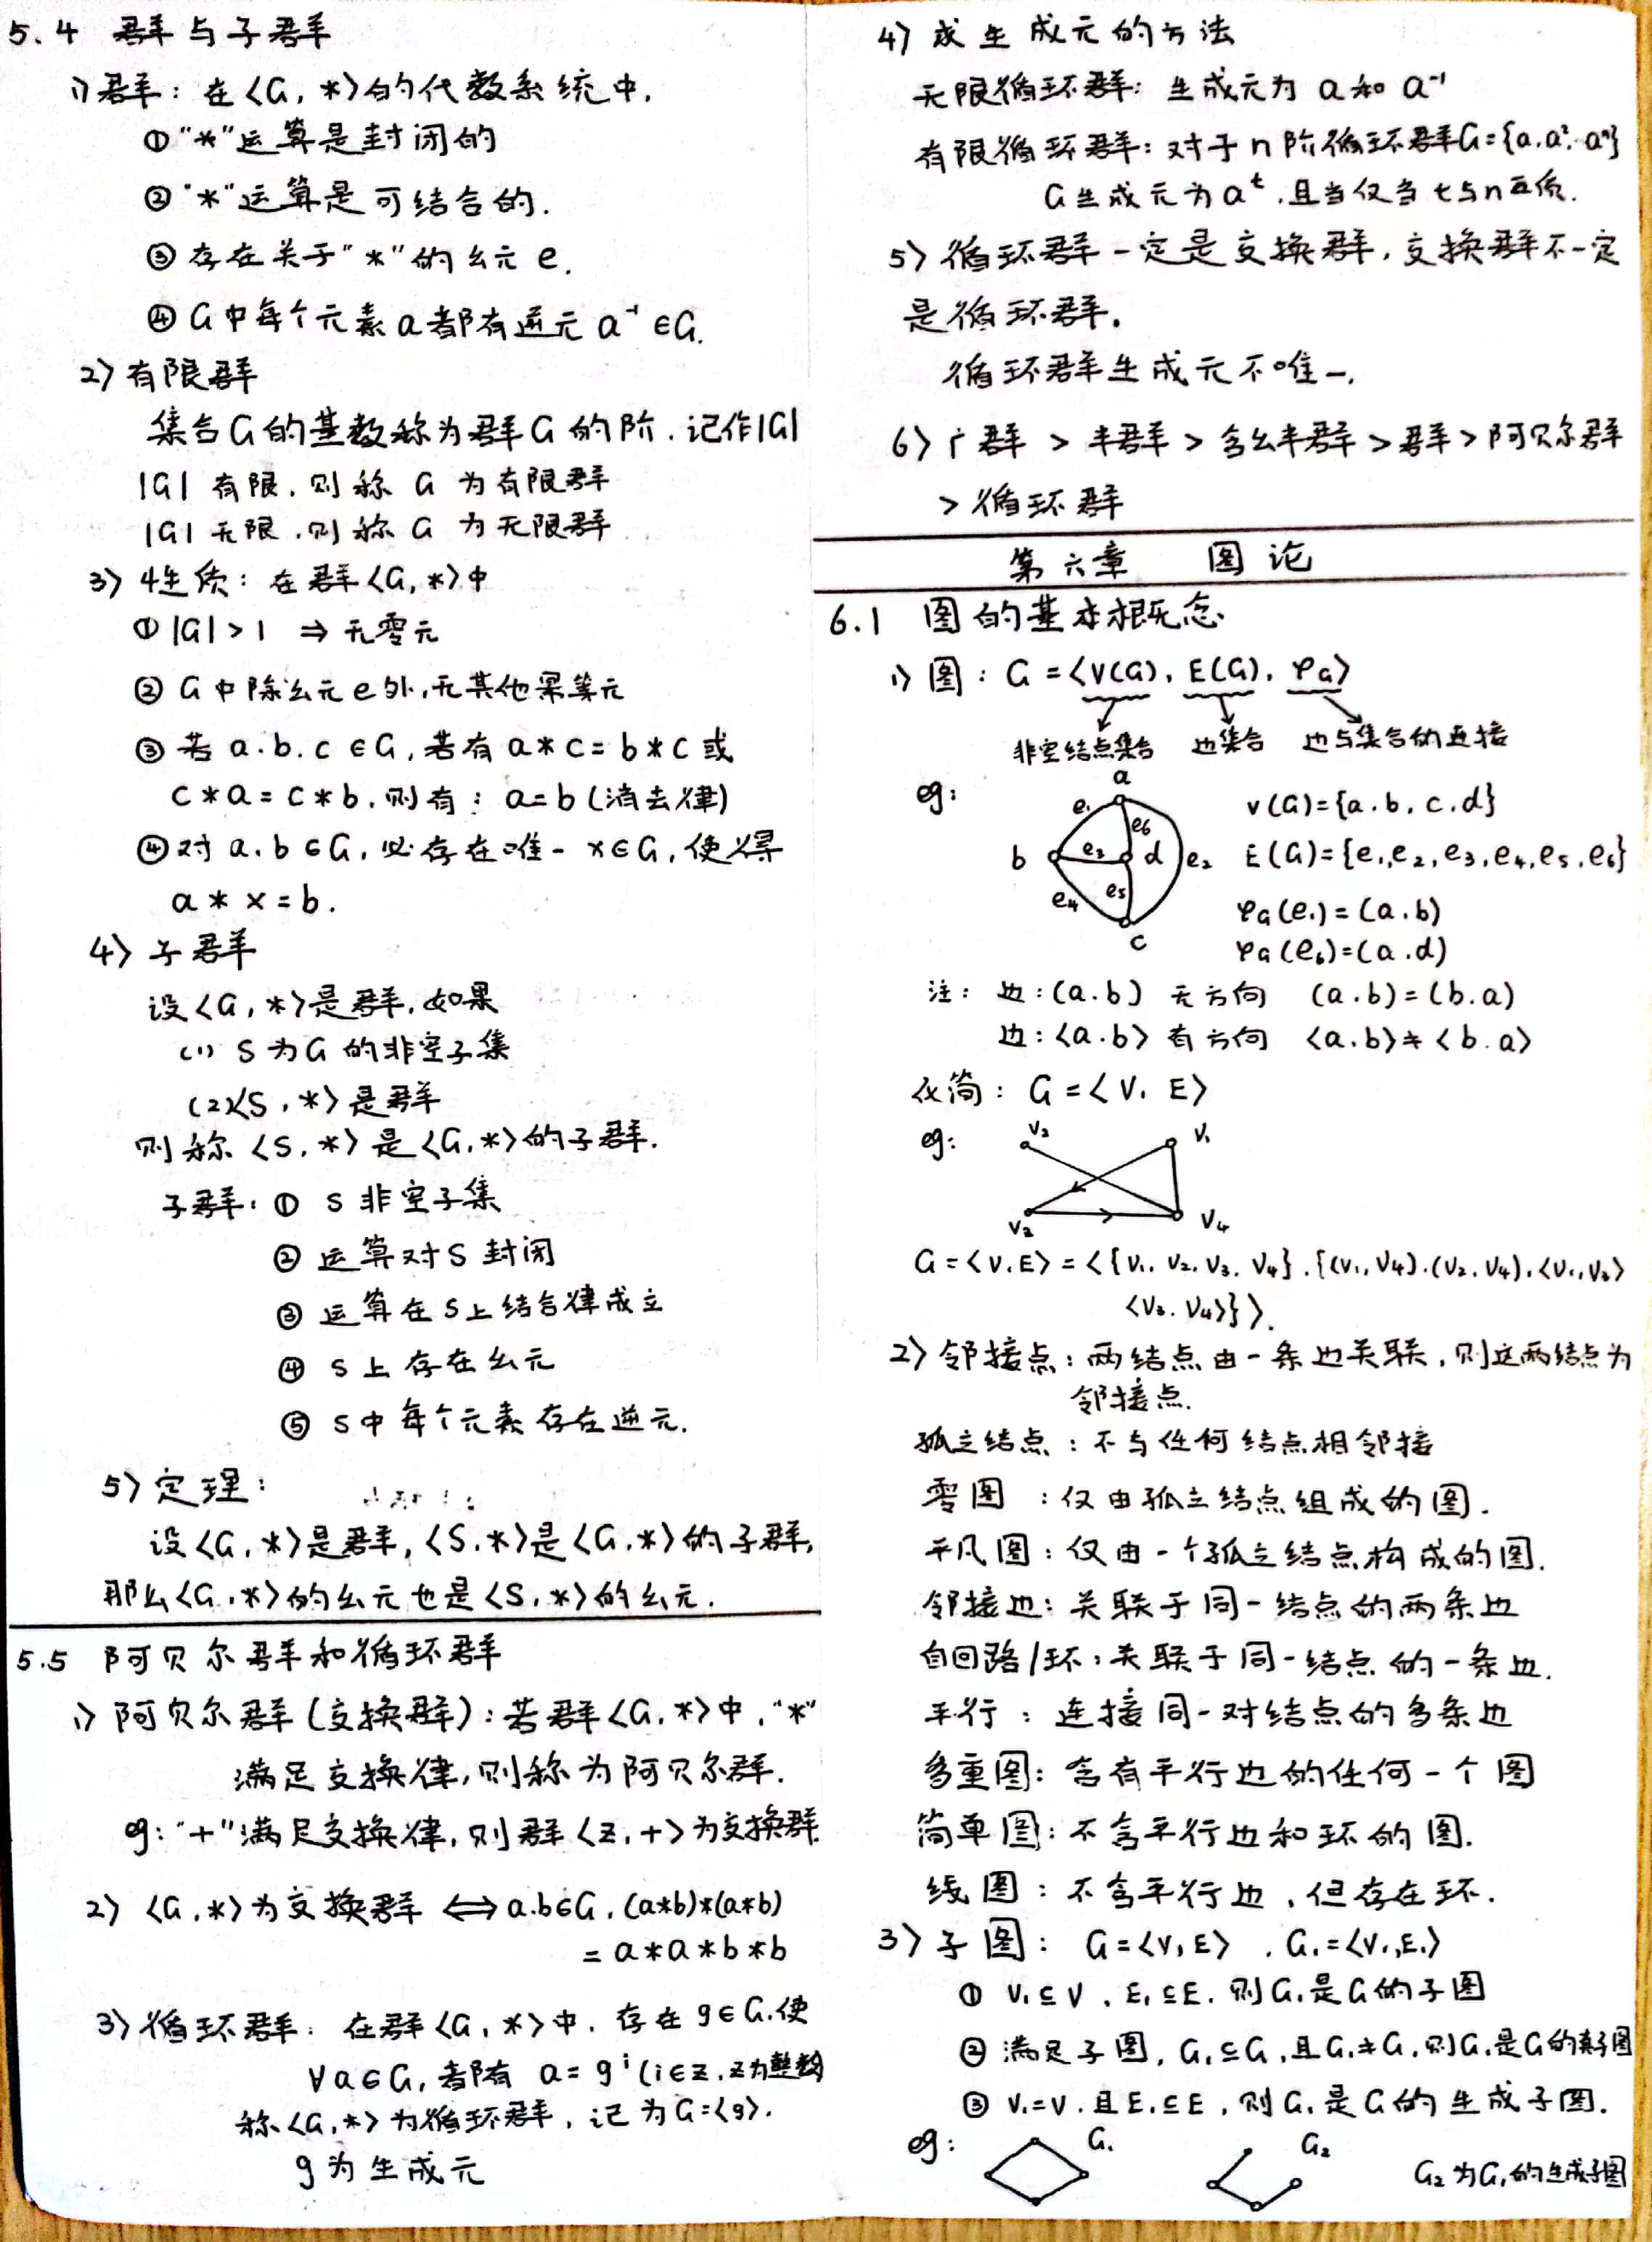 5.4 群与子群
1) 群：在<G, *>的代数系统中，
①"*"运算是封闭的
②"*"运算是可结合的.
③存在关于"*"的幺元 e.
④G中每个元素a都有逆元 a⁻¹∈G.
2) 有限群
集合G的基数称为群G的阶. 记作|G|
|G| 有限, 则称 G 为有限群
|G| 无限, 则称 G 为无限群
3) 性质：在群<G, *>中
① |G|>1 ⇒ 无零元
② G中除幺元e外,无其他幂等元
③ 若 a.b.c∈G, 若有 a*c=b*c 或
c*a=c*b, 则有：a=b (消去律)
④对 a.b∈G, 必存在唯一 x∈G, 使得
a * x = b.
4) 子群
设<G, *>是群, 如果
(1) S为G的非空子集
(2)<S, *>是群
则称 <S, *> 是<G, *>的子群.
子群：① S 非空子集
② 运算对S封闭
③ 运算在S上结合律成立
④ S上存在幺元
⑤ S中每个元素存在逆元.
5) 定理：
设<G, *>是群, <S, *>是<G, *>的子群,
那么<G, *>的幺元也是<S, *>的幺元.
5.5 阿贝尔群和循环群
1) 阿贝尔群(交换群)：若群<G, *>中, "*"
满足交换律, 则称为阿贝尔群.
eg："+"满足交换律, 则群<Z, +>为交换群
2) <G, *>为交换群 ⟺ a.b∈G, (a*b)*(a*b)
= a*a*b*b
3) 循环群：在群<G, *>中, 存在 g∈G,使
∀a∈G, 都有 a=gⁱ (i∈Z, Z为整数
称<G, *>为循环群, 记为G=<g>.
g为生成元
4) 求生成元的方法
无限循环群：生成元为 a 和 a⁻¹
有限循环群：对于n阶循环群G={a.a².aⁿ}
G生成元为aᵗ,且当仅当t与n互质.
5) 循环群一定是交换群, 交换群不一定
是循环群.
循环群生成元不唯一.
6) 广群 > 半群 > 含幺半群 > 群 > 阿贝尔群
> 循环群
第六章 图论
6.1 图的基本概念
1) 图：G=<V(G), E(G), φG>
非空结点集合 边集合 边与集合的连接
eg：
a
b
c
d
e₁
e₂
e₃
e₄
e₅
e₆
V(G)={a.b.c.d}
E(G)={e₁,e₂,e₃,e₄,e₅,e₆}
φG(e₁)=(a.b)
φG(e₆)=(a.d)
注：边：(a.b) 无方向 (a.b)=(b.a)
边：<a.b> 有方向 <a.b>≠<b.a>
化简：G=<V, E>
eg：
v₂ v₁
v₃ v₄
G=<V.E>=<{v₁, v₂, v₃, v₄}, {(v₁,v₄).(v₂,v₄),<v₁,v₃>
<v₃.v₄>}>.
2) 邻接点：两结点由一条边关联, 则这两结点为
邻接点.
孤立结点：不与任何结点相邻接
零图：仅由孤立结点组成的图.
平凡图：仅由一个孤立结点构成的图.
邻接边：关联于同一结点的两条边
自回路/环：关联于同一结点的一条边.
平行：连接同一对结点的多条边
多重图：含有平行边的任何一个图
简单图：不含平行边和环的图.
线图：不含平行边, 但存在环.
3) 子图：G=<V, E>, G₁=<V₁,E₁>
① V₁⊆V, E₁⊆E, 则G₁是G的子图
② 满足子图, G₁⊆G, 且G₁≠G, 则G₁是G的真子图
③ V₁=V, 且E₁⊆E, 则G₁是G的生成子图.
eg： G₁ G₂ G₂为G₁的生成子图